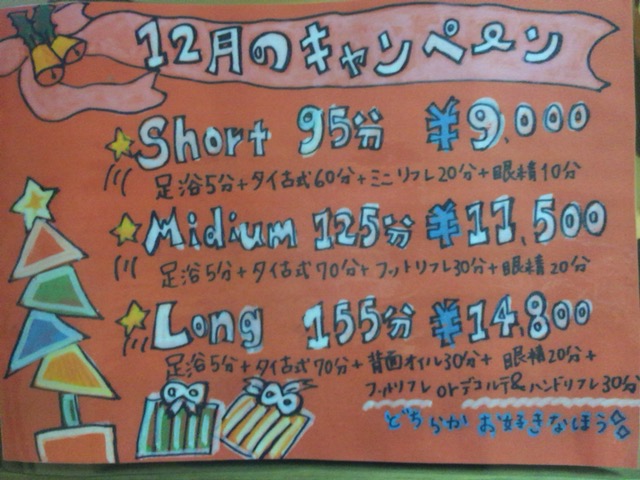 12月のキャンペーン
Short 95分 ¥9,000
足浴5分+タイ古式60分+ミニリフレ20分+眼精10分
Midium 125分 ¥11,500
足浴5分+タイ古式70分+フットリフレ30分+眼精20分
Long 155分 ¥14,800
足浴5分+タイ古式70分+背面オイル30分+眼精20分+
フットリフレ orデコルテ&ハンドリフレ30分
どちらかお好きなほう